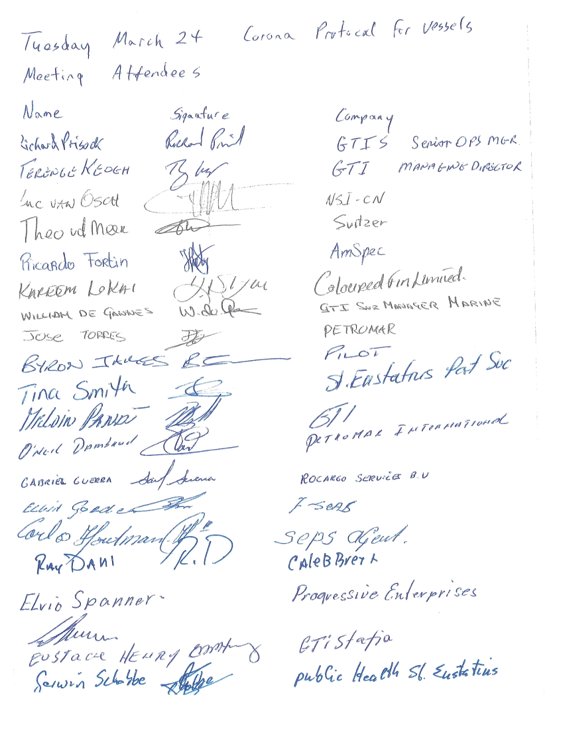 Tuesday March 24 Corona Protocal for vessels
Meeting Attendees
Name Signature Company
Richard Prisock GTIS Senior OPS MGR.
TERENCE KEOGH GTI MANAGING DIRECTOR
Luc VAN OSCH NSI-CN
Theo vd Meer Svitzer
Ricardo Fortin AmSpec
KAREEM LOKAI Coloured fin Limited.
WILLIAM DE GANNES GTI Snr MANAGER MARINE
JOSE TORRES PETROMAR
BYRON JAMES PILOT
Tina Smith St. Eustatius Port Svc
Melvin GTI
O'Neil PETROMAR INTERNATIONAL
GABRIEL GUERRA ROCARGO SERVICES B.V
Seps Agent.
Carlos Houtman
RAY DANI CALEB BRETT
Elvio Spanner. Progressive Enterprises
EUSTACE HENRY GTI Statia
Gerwin Schobbe public Health St. Eustatius